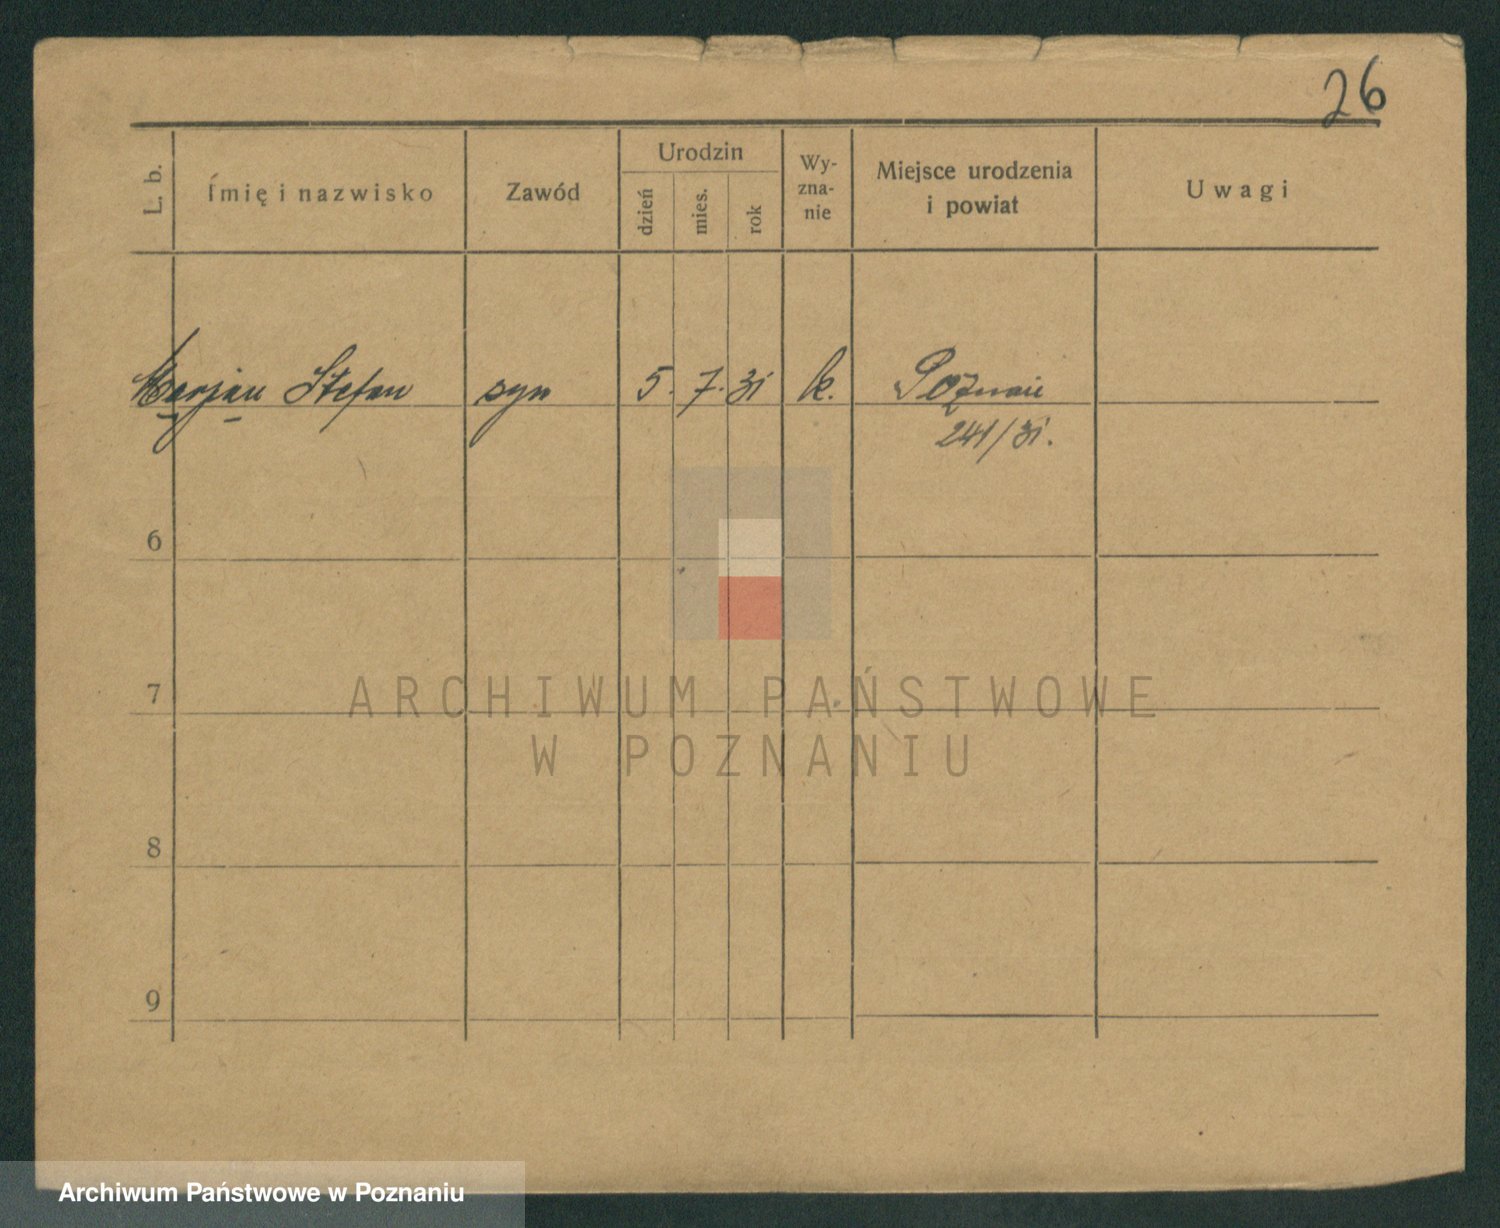 26
L. b.
Imię i nazwisko
Zawód
Urodzin
dzień
mies.
rok
Wy-
zna-
nie
Miejsce urodzenia
i powiat
Uwagi
Marjan Stefan syn 5. 7. 31 k. Poznań
241/31.
6
7
8
9
ARCHIWUM PAŃSTWOWE
W POZNANIU
Archiwum Państwowe w Poznaniu